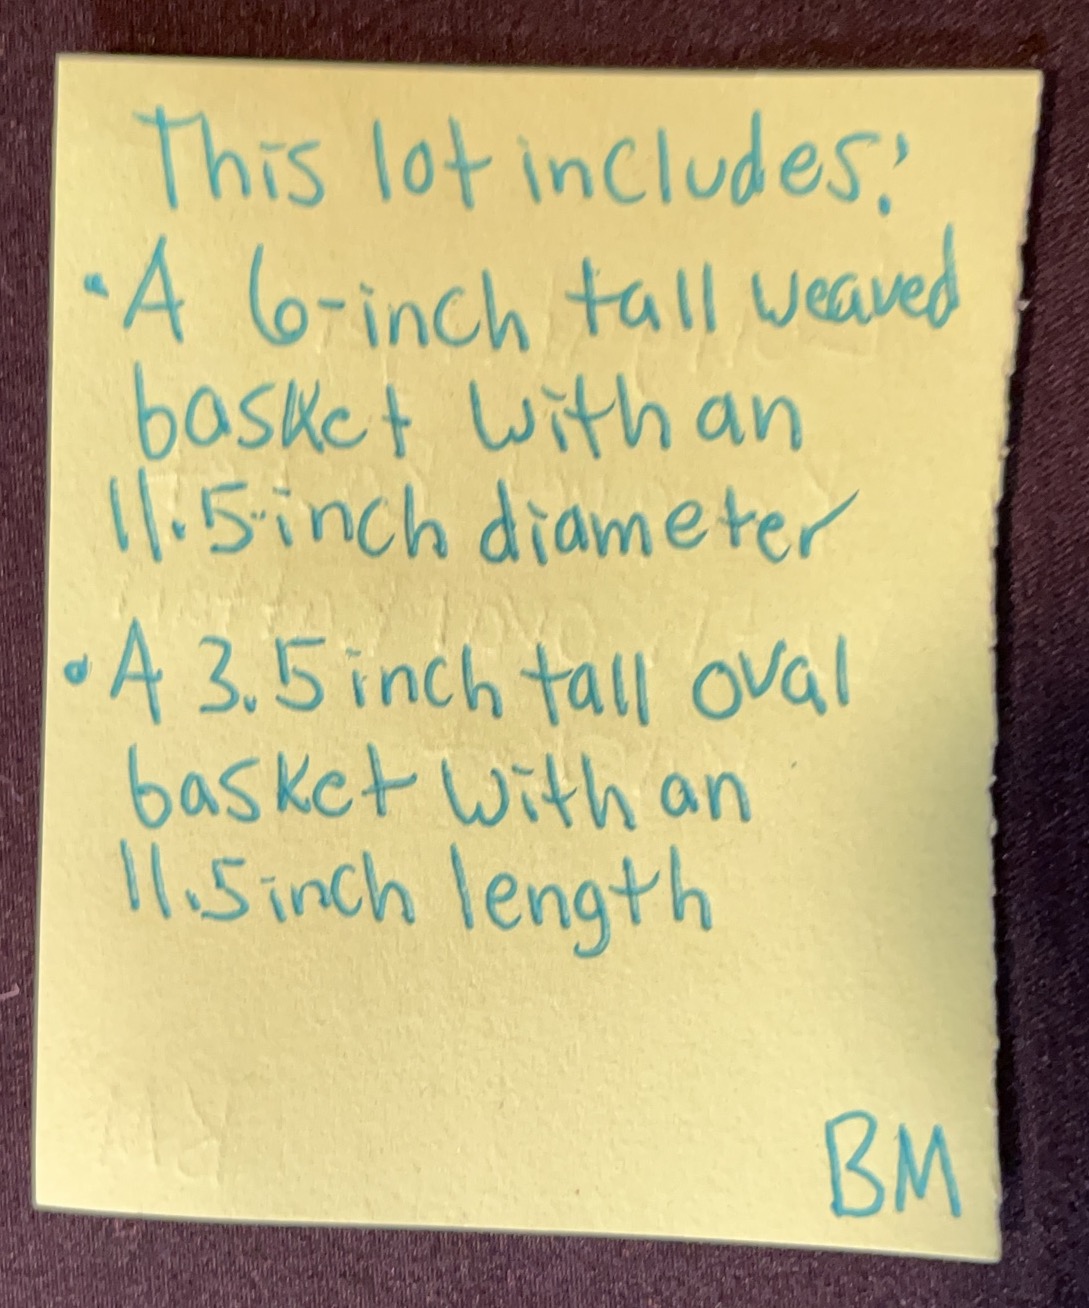 This lot includes:
• A 6-inch tall weaved
basket with an
11.5-inch diameter
• A 3.5 inch tall oval
basket with an
11.5 inch length
BM